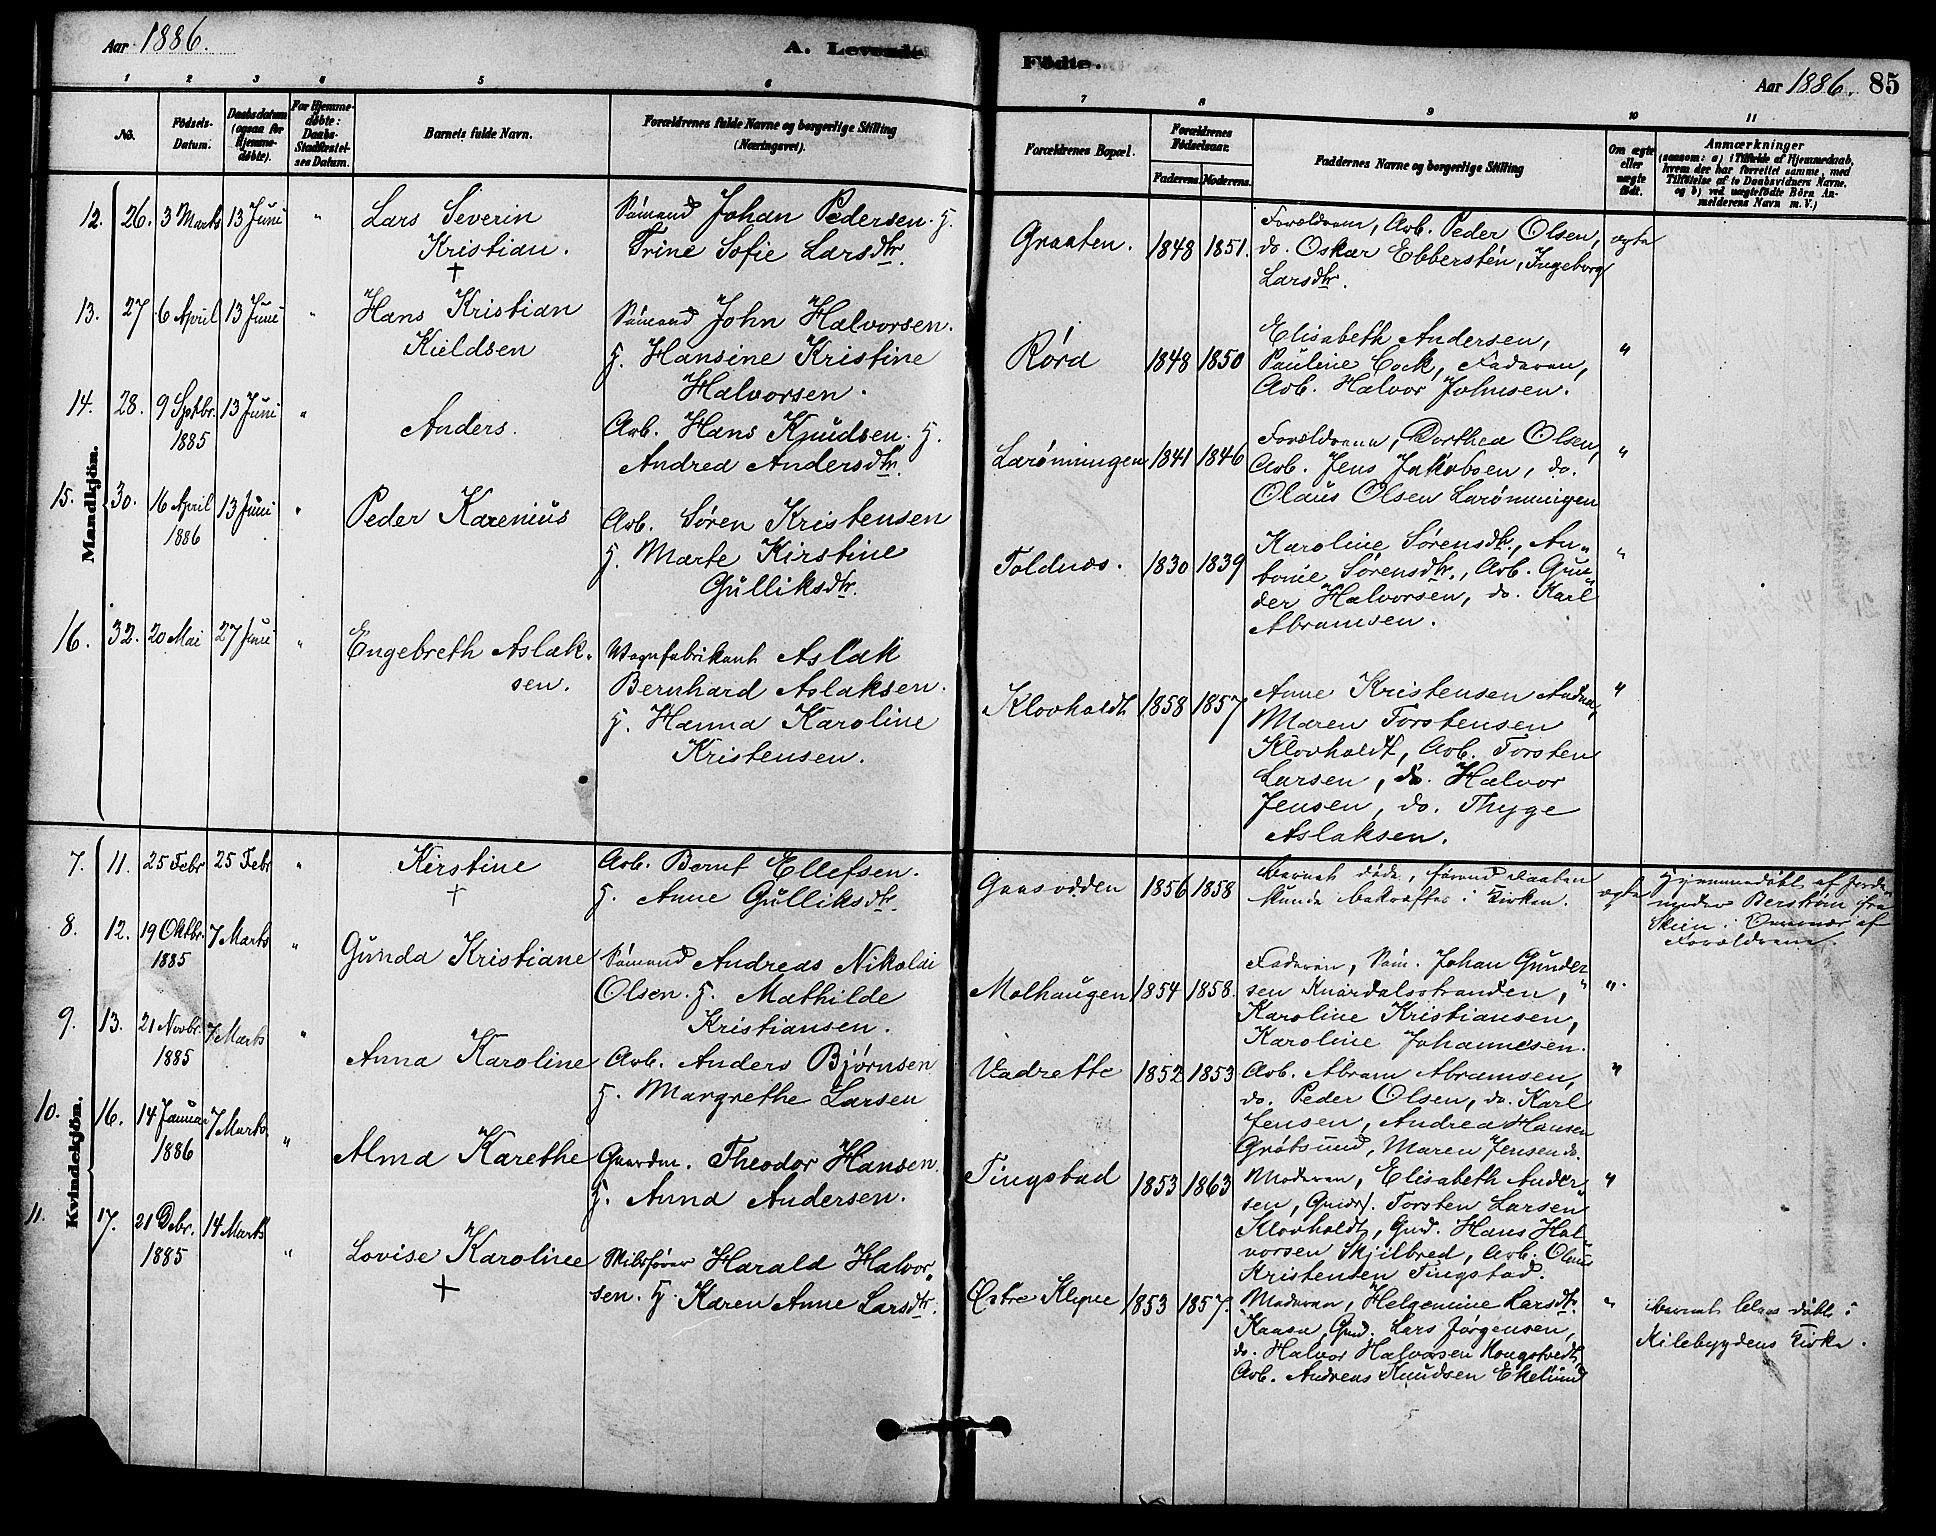 Aar 1886.
A. Levende Fødte.
Aar 1886. 85
1 2 3 4 5 6 7 8 9 10 11
No.
Fødsels-Datum.
Daabsdatum (ogsaa for Hjemmedøbte).
For Hjemmedøbte: Daabs-Stadfæstelses Datum.
Barnets fulde Navn.
Forældrenes fulde Navne og borgerlige Stilling (Næringsvei).
Forældrenes Bopæl.
Forældrenes Fødselsaar.
Faderens. Moderens.
Faddernes Navne og borgerlige Stilling
Om ægte eller uægte født.
Anmærkninger
(saasom: a) i Tilfælde af Hjemmedaab, hvem der har forrettet samme, med Tilføielse af to Daabsvidners Navne, og b) ved uægtefødte Børn Anmelderens Navn m. V.)
Mandkjøn.
12. 26. 3 Marts 13 Juni "
Lars Severin
Kristian.
†
Sømand Johan Pedersen. H.
Trine Sofie Larsdtr.
Graaten. 1848 1851.
Forældrene, Arb. Peder Olsen,
do. Oskar Ebbersten, Ingeborg
Larsdtr.
ægte
13. 27 6 April 13 Juni "
Hans Kristian
Kieldsen
Sømand John Halvorsen.
H. Hansine Kristine
Halvorsen.
Rørd 1848 1850
Elisabeth Andersen,
Pauline Cock, Faderen,
Arb. Halvor Johnsen.
"
14. 28. 9 Sptbr. 13 Juni "
1885
Anders.
Arb. Hans Knudsen. H.
Andrea Andersdtr.
Larønningen 1841 1846
Forældrene, Dorthea Olsen,
Arb. Jens Jakobsen, do.
Olaus Olsen Larønningen
"
15. 30. 16 April 13 Juni "
1886
Peder Karenius
Arb. Søren Kristensen
H. Marte Kirstine
Gulliksdtr.
Toldnes. 1830 1839
Karoline Sørensdtr., An-
tonie Sørensdtr., Arb. Gun-
der Halvorsen, do. Karl
Abramsen.
"
16. 32. 20 Mai 27 Juni "
Engebreth Aslak-
sen.
Vognfabrikant Aslak
Bernhard Aslaksen.
H. Hanna Karoline
Kristensen.
Klovholdt 1858 1857
Anne Kristensen
Maren Torstensen
Klovholdt, Arb. Torsten
Larsen, do. Halvor
Jensen, do. Thyge
Aslaksen.
"
Kvindekjøn.
7. 11. 25 Febr 25 Febr "
Kirstine
†
Arb. Bernt Ellefsen.
H. Anne Gulliksdtr.
Gaasodden 1856 1858
Barnet døde, førend Daaben
kunde bekræftes i Kirken.
ægte
Hjemmedøbt af Jorde-
moder Berstrøm fra
Skien. Overvær af
Forældrene.
8. 12. 19 Oktbr. 7 Marts "
1885
Gunda Kristiane
Sømand Andreas Nikolai
Olsen. H. Mathilde
Kristiansen.
Molhaugen 1854 1858.
Faderen, Søm. Johan Gunder-
sen Knardalsstranden,
Karoline Kristiansen,
Karoline Johannesen.
"
9. 13. 21 Novbr. 7 Marts "
1885
Anna Karoline
Arb. Anders Bjørnsen
H. Margrethe Larsen
Vadrette 1852 1853
Arb. Abram Abramsen,
do. Peder Olsen, do. Karl
Jensen, Andrea Hansen
Grøtsund, Maren Jensen do.
"
10. 16. 14 Januar 7 Marts "
1886
Alma Karethe
Gaardm. Theodor Hansen.
H. Anna Andersen.
Tingstad 1853 1863
Moderen, Elisabeth Ander-
sen, Torsten Larsen
Klovholdt, Gmd. Hans Hal-
vorsen Skjilbred, Arb. Olaus
Kristensen Tingstad.
"
11. 17. 21 Debr. 14 Marts "
1885
Lovise Karoline
†
Skibsfører Harald Halvor-
sen. H. Karen Anne Larsdtr.
Østre Klype 1853 1857.
Moderen, Helgemine Larsdtr.
Kaasa, Gmd. Lars Jørgensen,
do. Halvor Halvorsen
Arb. Andreas Knudsen Ekelund
"
Barnet blev døbt i
Kilebygdens Kirke.